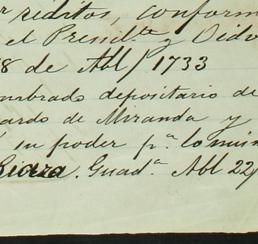 réditos, conform
el Presid.te y Oido
8 de Abl/1733
ombrado depositario de
ardo de Miranda y
su poder p.a lo mism
Guad.a Abl 22/